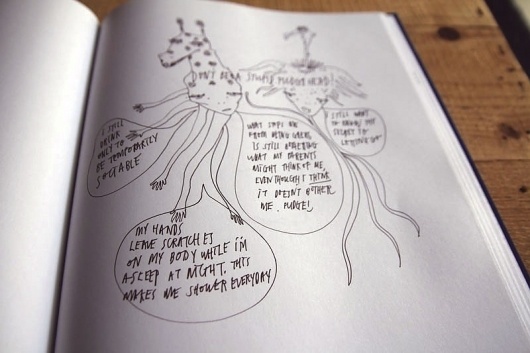 DON'T BE A STUPID PUDGE HEAD!
I STILL
DRINK
ONLY TO
BE TEMPORARILY
SOCIABLE
WHAT STOPS ME
FROM BEING
IS STILL BOTHERING
WHAT MY PARENTS
MIGHT THINK OF ME,
EVEN THOUGH I THINK
IT DOESN'T BOTHER
ME. PUDGE!
I STILL WANT
TO KNOW
SECRET TO
LETTING GO
MY HANDS
LEAVE SCRATCHES
ON MY BODY WHILE I'M
ASLEEP AT NIGHT. THIS
MAKES ME SHOWER EVERYDAY